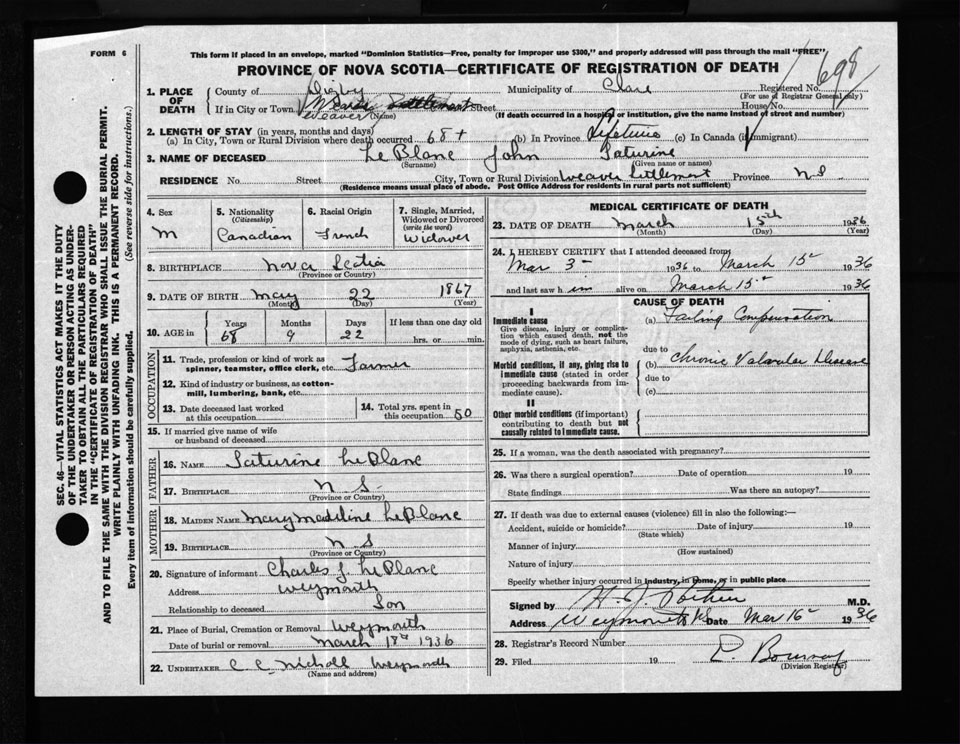 FORM 6
This form if placed in an envelope, marked "Dominion Statistics—Free, penalty for improper use $300," and properly addressed will pass through the mail "FREE"
PROVINCE OF NOVA SCOTIA—CERTIFICATE OF REGISTRATION OF DEATH
698
SEC. 46—VITAL STATISTICS ACT MAKES IT THE DUTY
OF THE UNDERTAKER OR PERSON ACTING AS UNDER-
TAKER TO OBTAIN ALL THE PARTICULARS REQUIRED
IN THE "CERTIFICATE OF REGISTRATION OF DEATH"
AND TO FILE THE SAME WITH THE DIVISION REGISTRAR WHO SHALL ISSUE THE BURIAL PERMIT.
WRITE PLAINLY WITH UNFADING INK. THIS IS A PERMANENT RECORD.
Every item of information should be carefully supplied. (See reverse side for instructions.)
1. PLACE OF DEATH
County of Digby Municipality of Clare Registered No.
(For use of Registrar General only)
If in City or Town Weaver Settlement Street House No.
(Name) (If death occurred in a hospital or institution, give the name instead of street and number)
2. LENGTH OF STAY (in years, months and days)
(a) In City, Town or Rural Division where death occurred 68+ (b) In Province Lifetime (c) In Canada (if immigrant)
3. NAME OF DECEASED LeBlanc John Saturine
(Surname) (Given name or names)
RESIDENCE No. Street City, Town or Rural Division Weaver Settlement Province N.S.
(Residence means usual place of abode. Post Office Address for residents in rural parts not sufficient)
4. Sex M
5. Nationality (Citizenship) Canadian
6. Racial Origin French
7. Single, Married, Widowed or Divorced (write the word) Widower
8. BIRTHPLACE Nova Scotia
(Province or Country)
9. DATE OF BIRTH May 22 1867
(Month) (Day) (Year)
10. AGE in Years 68 Months 9 Days 22 If less than one day old hrs. or min.
OCCUPATION
11. Trade, profession or kind of work as spinner, teamster, office clerk, etc. Farmer
12. Kind of industry or business, as cotton-mill, lumbering, bank, etc.
13. Date deceased last worked at this occupation
14. Total yrs. spent in this occupation 50
15. If married give name of wife or husband of deceased
FATHER
16. NAME Saturine LeBlanc
17. BIRTHPLACE N S
(Province or Country)
MOTHER
18. MAIDEN NAME Mary Madiline LeBlanc
19. BIRTHPLACE N S
(Province or Country)
20. Signature of informant Charles J. LeBlanc
Address Weymouth
Relationship to deceased Son
21. Place of Burial, Cremation or Removal Weymouth
Date of burial or removal March 18th 1936
22. UNDERTAKER C C Nicholl Weymouth
(Name and address)
MEDICAL CERTIFICATE OF DEATH
23. DATE OF DEATH March 15th 1936
(Month) (Day) (Year)
24. I HEREBY CERTIFY that I attended deceased from
Mar 3 1936 to March 15 1936
and last saw him alive on March 15 1936
CAUSE OF DEATH
I
Immediate cause
Give disease, injury or complication which caused death, not the mode of dying, such as heart failure, asphyxia, asthenia, etc.
(a) Failing Compensation
due to
Morbid conditions, if any, giving rise to immediate cause (stated in order proceeding backwards from immediate cause).
(b) Chronic Valvular Disease
due to
(c)
II
Other morbid conditions (if important) contributing to death but not causally related to immediate cause.
25. If a woman, was the death associated with pregnancy?
26. Was there a surgical operation? Date of operation 19
State findings Was there an autopsy?
27. If death was due to external causes (violence) fill in also the following:—
Accident, suicide or homicide? Date of injury 19
(State which)
Manner of injury
(How sustained)
Nature of injury
Specify whether injury occurred in industry, in home, or in public place
Signed by M.D.
Address Weymouth N.S. Date Mar 16 1936
28. Registrar's Record Number
29. Filed 19
(Division Registrar)